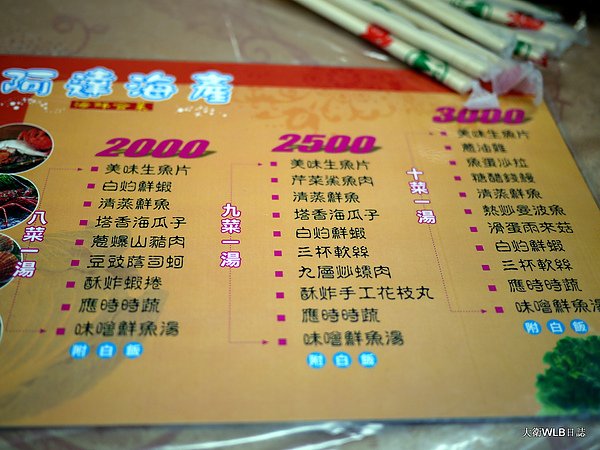 阿達海產
2000
美味生魚片
白灼鮮蝦
清蒸鮮魚
塔香海瓜子
蔥爆山豬肉
豆豉蔭司蚵
酥炸蝦捲
應時時蔬
味噌鮮魚湯
附白飯
八菜一湯
2500
美味生魚片
芹菜鯊魚肉
清蒸鮮魚
塔香海瓜子
白灼鮮蝦
三杯軟絲
九層炒螺肉
酥炸手工花枝丸
應時時蔬
味噌鮮魚湯
附白飯
九菜一湯
3000
美味生魚片
蔥油雞
魚蛋沙拉
糖醋錢鰻
清蒸鮮魚
熱炒曼波魚
滑蛋雨來菇
白灼鮮蝦
三杯軟絲
應時時蔬
味噌鮮魚湯
附白飯
十菜一湯
大衛WLB日誌